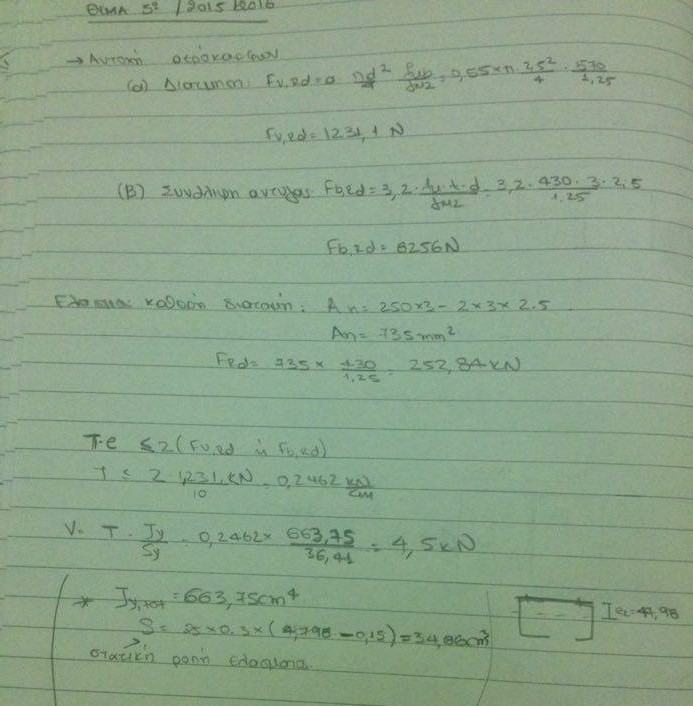 ΘΕΜΑ 5º /2015/2016
→ Αντοχή
(α) Διάτμηση: Fv,Rd = α · πd²/4 · fub/γM2 = 0,55 × π · 2,5²/4 · 570/1,25
Fv,Rd = 1231,1 N
(β) Σύνθλιψη άντυγας: Fb,Rd = 3,2 · fu · t · d/γM2 = 3,2 · 430 · 3 · 2,5/1,25
Fb,Rd = 8256 N
Έλασμα: καθαρή διατομή: An = 250×3 - 2×3×2.5
An = 735 mm²
FRd = 735 × 430/1,25 = 252,84 kN
T·e ≤ 2 (Fv,Rd ή Fb,Rd)
T ≤ 2·1,231 kN/10 = 0,2462 kN/cm
V = T · Jy/Sy = 0,2462 × 663,75/36,41 = 4,5 kN
* Jy,tot = 663,75 cm⁴
S = 25×0.3×(4,798 - 0,15) = 34,86 cm³
στατική ροπή ελάσματος
= 47,98